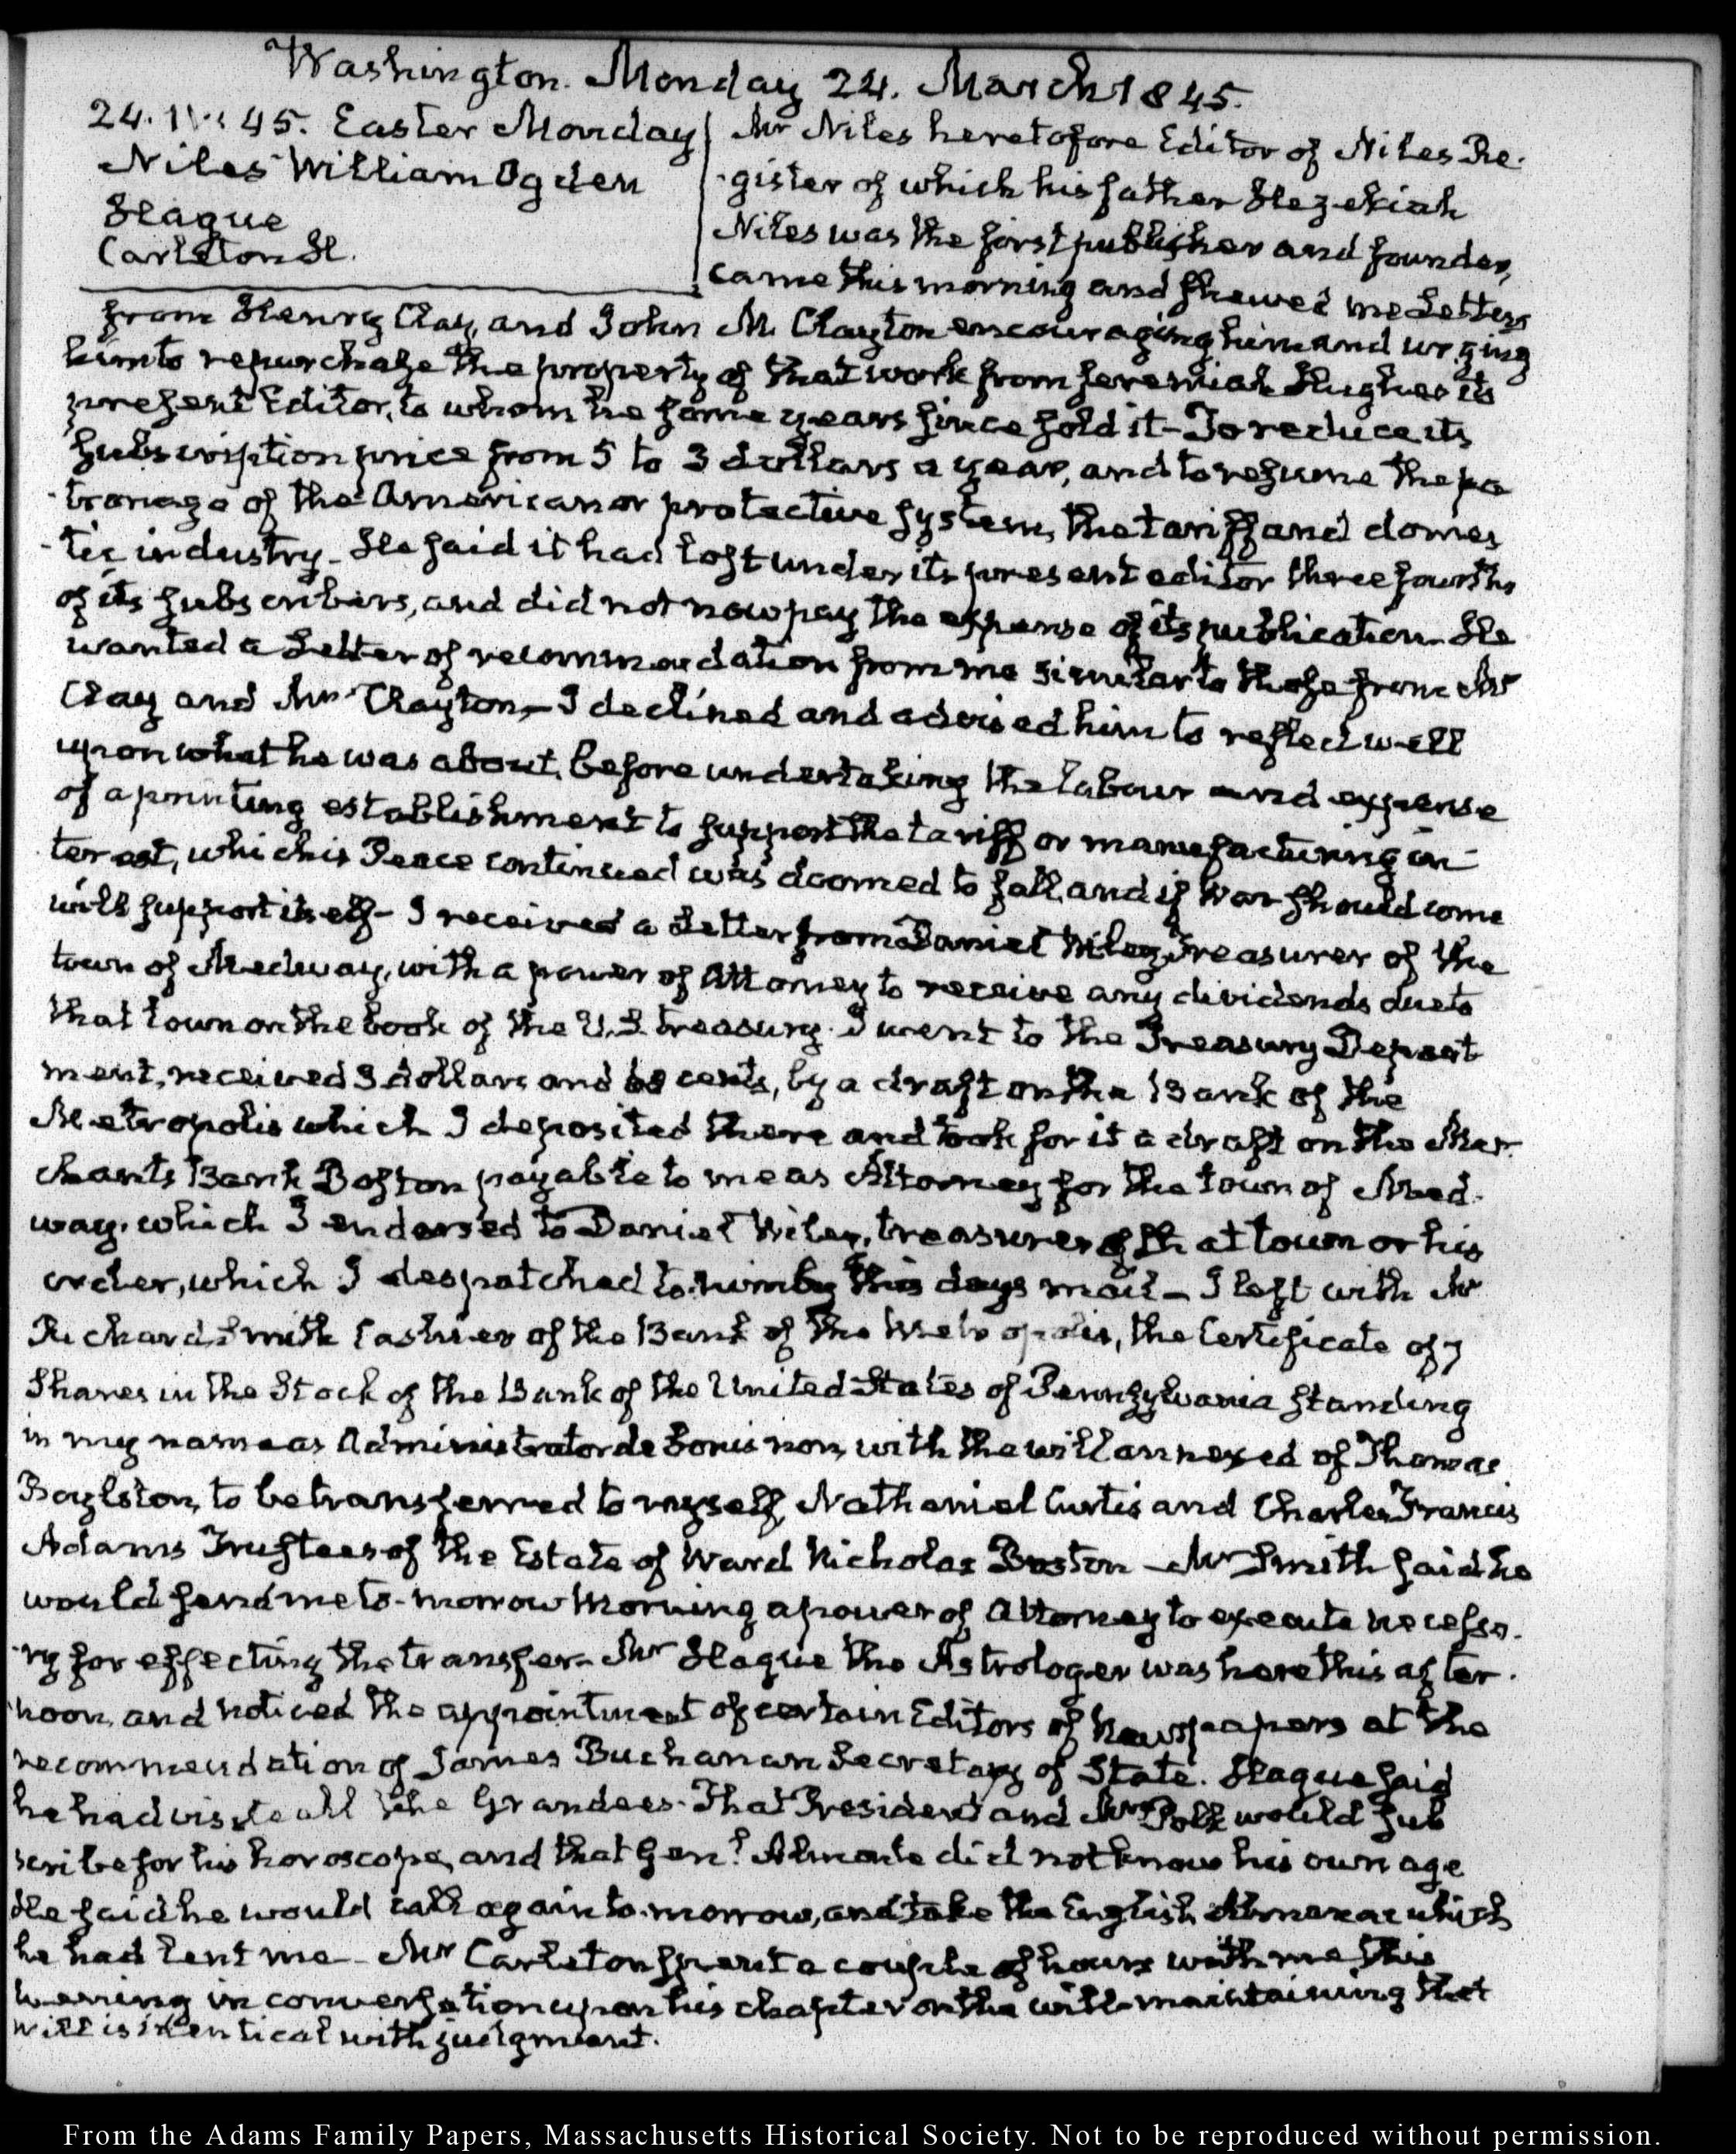 Washington. Monday 24. March 1845.
24. IV. 45. Easter Monday
Niles William Ogden
Hague
Carleton H.
Mr Niles heretofore Editor of Niles Re-
-gister of which his father Hezekiah
Niles was the first publisher and founder,
came this morning and shewed me Letters
from Henry Clay, and John M. Clayton encouraging him and urging
him to repurchase the property of that work from Jeremiah Hughes its
present Editor, to whom he some years since sold it - To reduce its
subscription price from 5 to 3 dollars a year, and to resume the pa
-tronage of the American or protective system, the tariff and domes
-tic industry - He said it had lost under its present editor three fourths
of its subscribers, and did not now pay the expense of its publication - He
wanted a Letter of recommendation from me similar to those from Mr
Clay and Mr Clayton - I declined and advised him to reflect well
upon what he was about, before undertaking the labour and expense
of a printing establishment to support the tariff or manufacturing in-
terest, which is Peace continued was doomed to fall, and if War should come
will support itself - I received a Letter from Daniel Wiley, Treasurer of the
town of Medway, with a power of Attorney to receive any dividends due to
that town on the book of the U.S. treasury. I went to the Treasury Depart
ment, received 3 dollars and cents, by a draft on the Bank of the
Metropolis which I deposited there and took for it a draft on the Mer-
chants Bank Boston payable to me as Attorney for the town of Med-
way, which I endorsed to Daniel Wiley, treasurer of that town or his
order, which I despatched to him by this days mail - I left with Mr
Richard Smith Cashier of the Bank of the Metropolis, the Certificate of 7
Shares in the Stock of the Bank of the United States of Pennsylvania standing
in my name as Administrator de bonis non, with the will annexed of Thomas
Boylston, to be transferred to myself, Nathaniel Curtis and Charles Francis
Adams Trustees of the Estate of Ward Nicholas Boston - Mr Smith said he
would send me to-morrow Morning a power of Attorney to execute necessa-
-ry for effecting the transfer - Mr Hague the Astrologer was here this after-
noon, and noticed the appointment of certain Editors of Newspapers at the
recommendation of James Buchanan Secretary of State. Hague said
he had visited all the Grandees - That President and Mrs Polk would sub
scribe for his horoscope, and that Genl. Almonte did not know his own age
He said he would call again to-morrow, and take the English Almanac which
he had lent me - Mr Carleton spent a couple of hours with me this
evening in conversation upon his chapter on the will - maintaining that
will is identical with judgment.
From the Adams Family Papers, Massachusetts Historical Society. Not to be reproduced without permission.